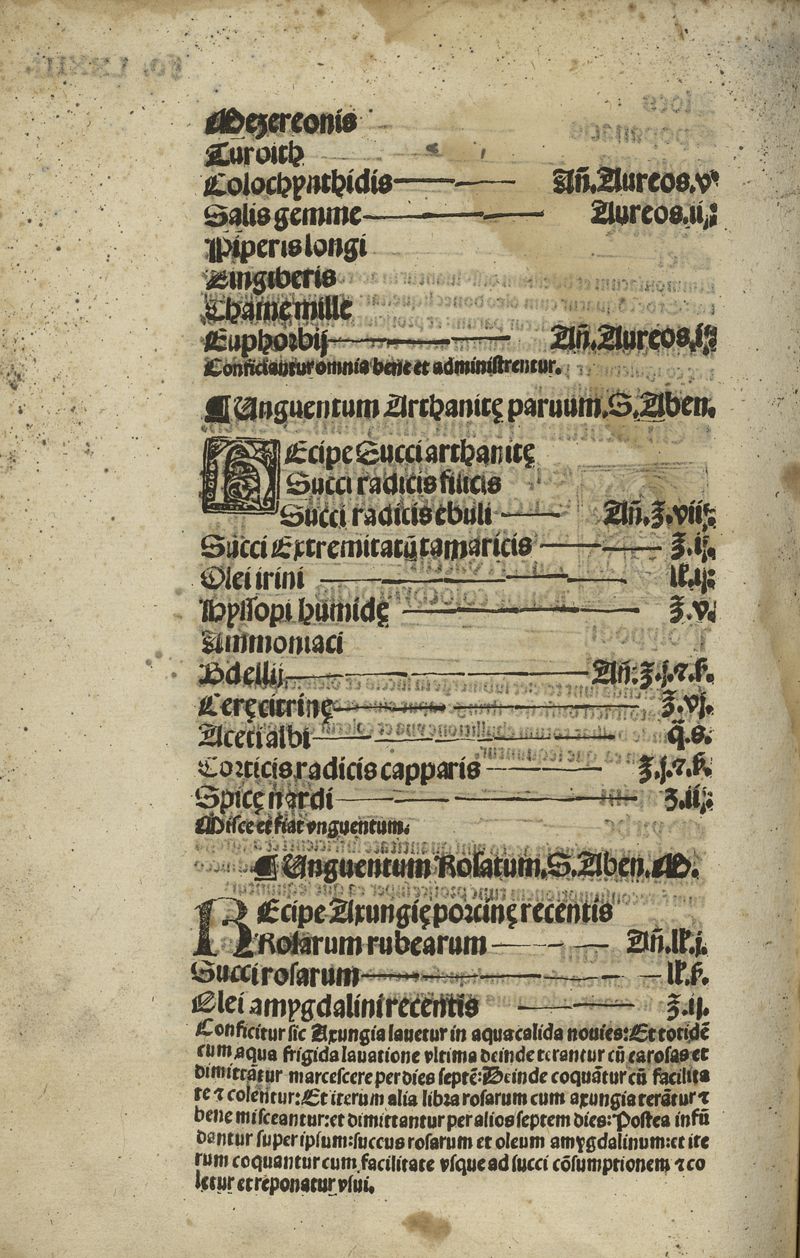 Mezereonis
Turbith
Colochynthidis Añ.Aureos.v
Salis gemme Aureos.ii;
Piperis longi
Zingiberis
Chamęmille
Euphorbij Añ.Aureos.j;
Conficiantur omnia bene et administrentur.
¶ Unguentum Arthanitę paruum.S.Aben.
REcipe Succi arthanitę
Succi radicis filicis
Succi radicis ebuli Añ.ʒ.viij;
Succi Extremitatū tamaricis ℥.ij.
Olei irini lb.ij;
Hyssopi humidę ℥.v.
Ammoniaci
Bdellij Añ:℥.j.⁊.ß.
Cerę citrinę ℥.vj.
Aceti albi q̄.s.
Corticis radicis capparis ℥.j.⁊.ß.
Spicę nardi ʒ.iij;
Misce et fiat vnguentum.
¶ Unguentum Rosatum.S.Aben.M.
REcipe Axungię porcinę recentis
Rosarum rubearum Añ.lb.j.
Succi rosarum lb.ß.
Olei amygdalini recentis ℥.ij.
Conficitur sic Axungia lauetur in aqua calida nouies:Et totidē
cum aqua frigida lauatione vltima deinde terantur cū ea rosas et
dimittātur marcescere per dies septē:Deinde coquātur cū facilita
te ⁊ colentur:Et iterum alia libra rosarum cum axungia terātur ⁊
bene misceantur:et dimittantur per alios septem dies:Postea infū
dantur super ipsum:succus rosarum et oleum amygdalinum:et ite
rum coquantur cum facilitate vsque ad succi cōsumptionem ⁊ co
letur et reponatur vsui.